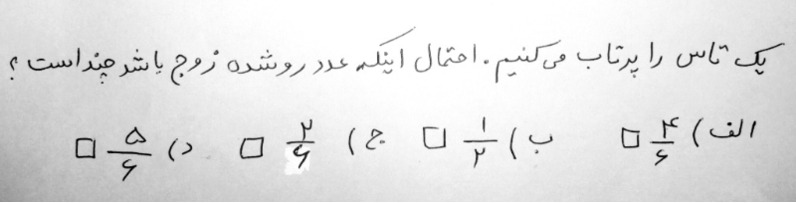 یک تاس را پرتاب می‌کنیم. احتمال اینکه عدد رو شده زوج باشد چند است؟
الف) ۴/۶ □ ب) ۱/۲ □ ج) ۲/۶ □ د) ۵/۶ □